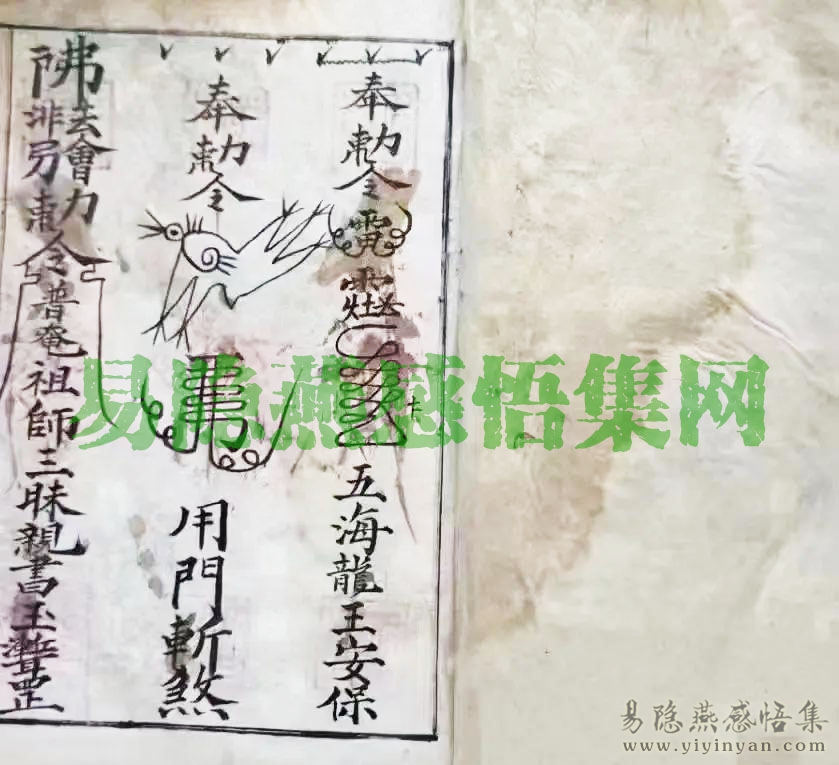 奉勅令
五海龍王安保
奉勅令
用門斬煞
佛法會力
勅令普奄祖師三昧親書玉
易隐燕感悟集网
易隐燕感悟集
www.yiyinyan.com